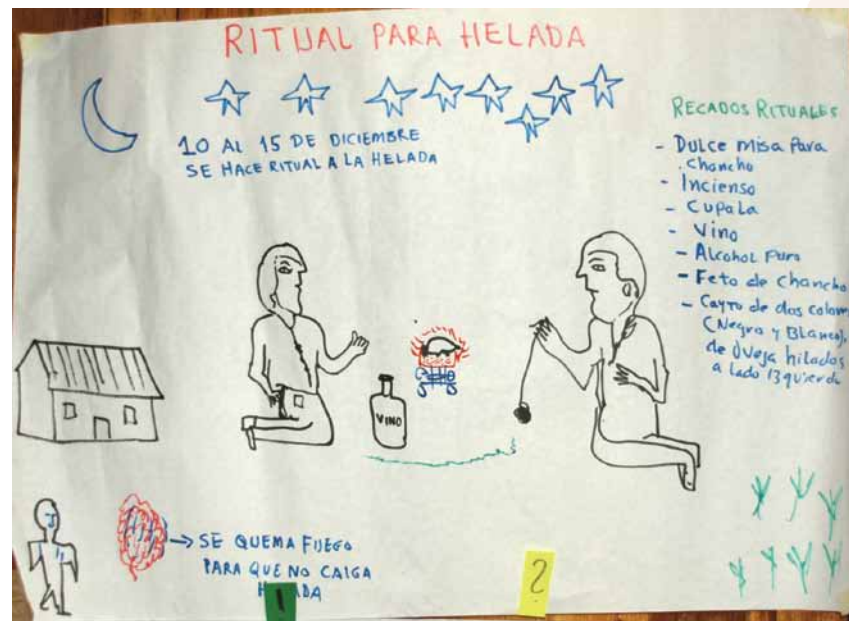 RITUAL PARA HELADA
10 AL 15 DE DICIEMBRE
SE HACE RITUAL A LA HELADA
RECADOS RITUALES
- Dulce misa Para
Chancho
- Incienso
- Cupala
- Vino
- Alcohol Puro
- Feto de Chancho
- Cayto de dos
(Negro y Blanco),
de Oveja hilados
a lado IZquierdo
VINO
→ SE QUEMA FUEGO
PARA QUE NO CAIGA
1
2